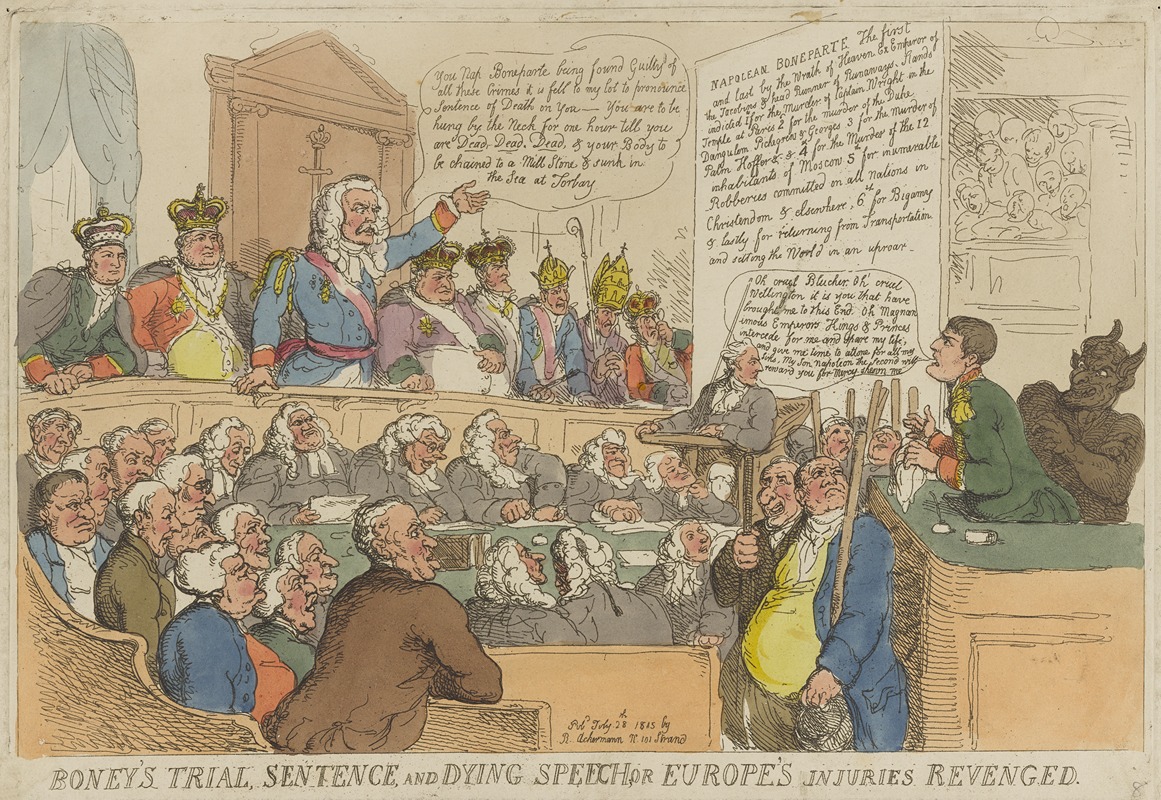 You Nap Boneparte being found Guilty of
all these Crimes it is fell to my lot to pronounce
Sentence of Death on You — You are to be
hung by the Neck for one hour till you
are Dead, Dead, Dead, & your Body to
be chained to a Mill Stone & sunk in
the Sea at Torbay
NAPOLEAN BONEPARTE The first
and last by the Wrath of Heaven Ex Emperor of
the Jacobins & head Runner of Runaways, Stands
indicted 1st for the Murder of Captain Wright in the
Temple at Paris 2 for the murder of the Duke
Dangulem Pichegrew & Georges 3 for the Murder of
Palm Hoffer &c &c 4th for the Murder of the 12
inhabitants of Moscow 5th for inumerable
Robberies committed on all Nations in
Christendom & elsewhere, 6th for Bigamy
& lastly for returning from Transportation,
and setting the World in an uproar —
Oh cruel Blucher, Oh! cruel
Wellington it is you that have
brought me to this End. Oh Magnan
imous Emperors Kings & Princes
intercede for me and spare my life,
and give me time to attone for all my
Sins, My Son Napoleon the Second will
reward you for Mercy shewn me
Pubd July 28th 1815 by
R. Ackermann N 101 Strand
BONEY'S TRIAL, SENTENCE, AND DYING SPEECH, OR EUROPE'S INJURIES REVENGED.
8